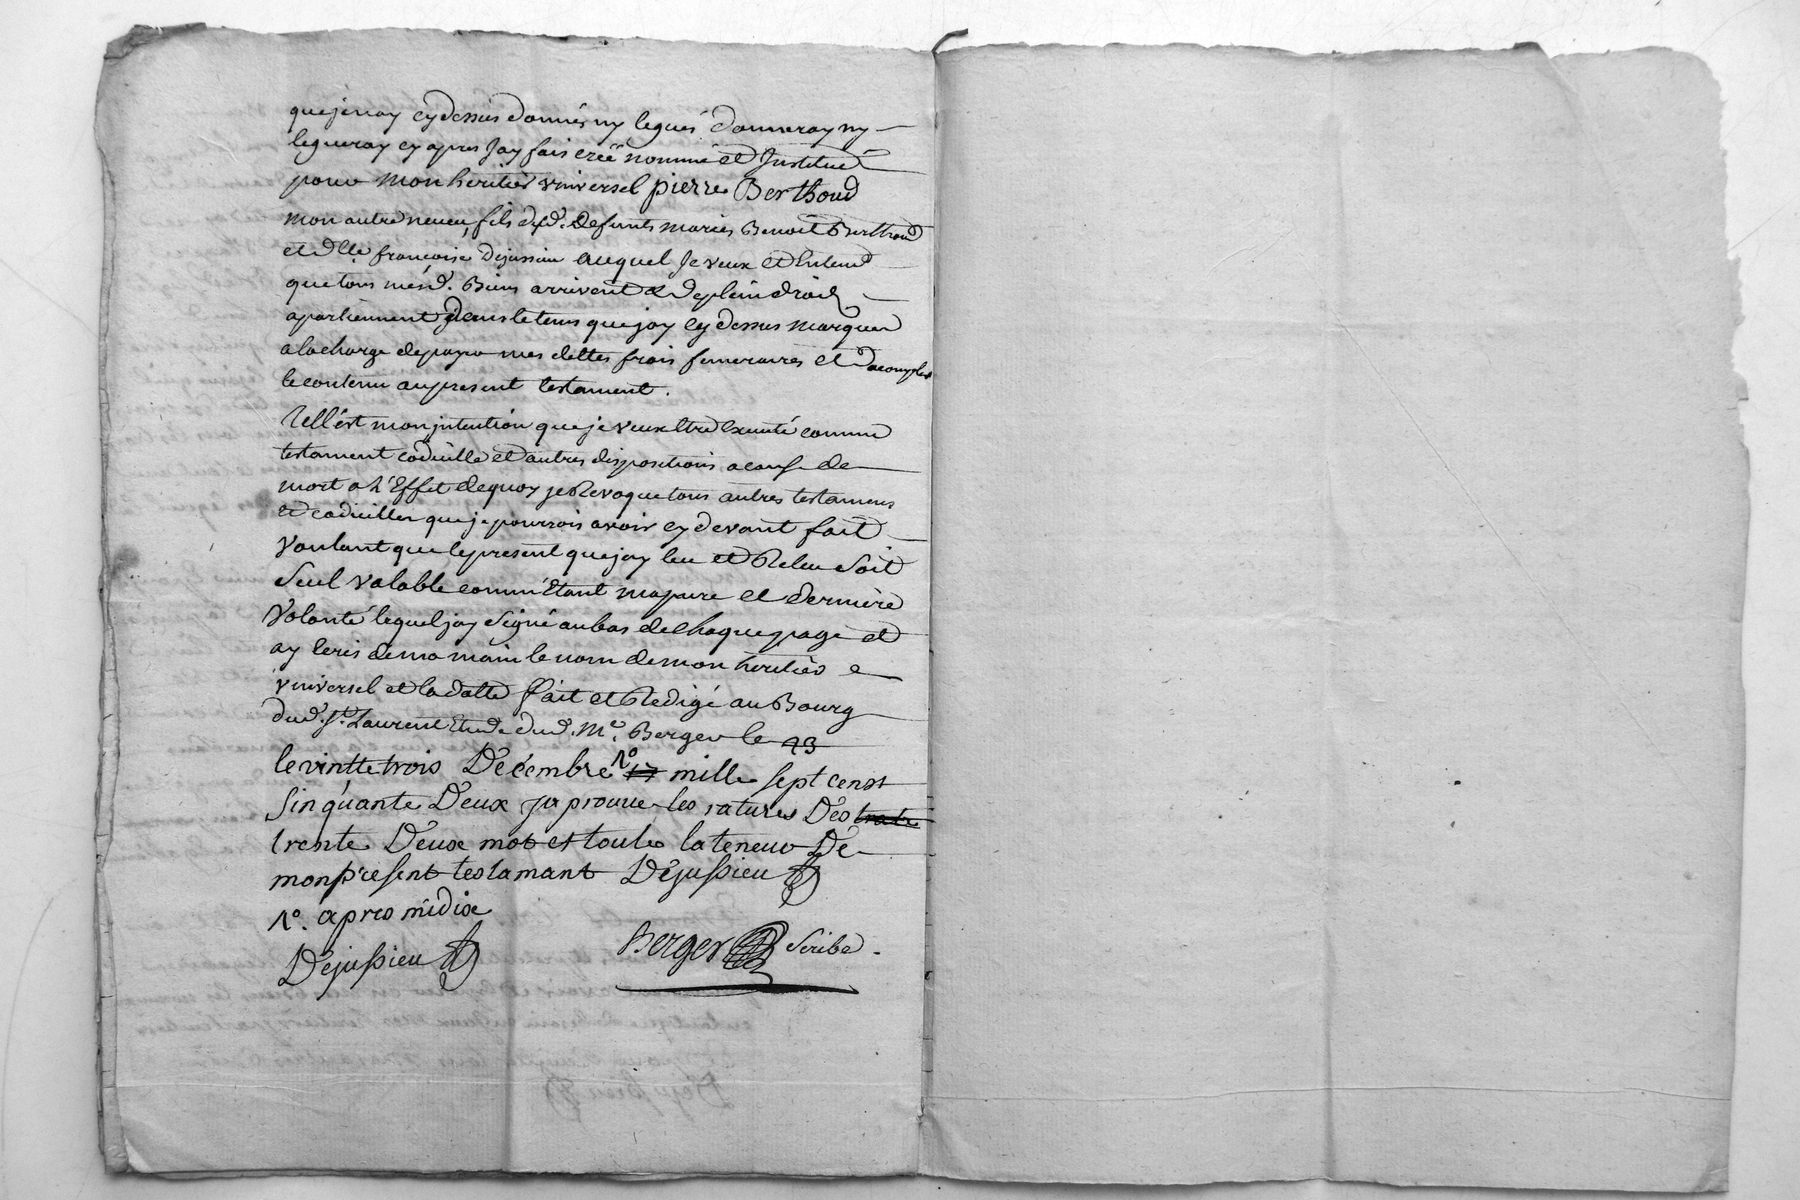 que je nay cy dessus donnés ny legués donneray ny
legueray cy apres Jay fais créé nommé et Institué
pour mon heritier vniversel pierre Berthoud
mon autre neveu, fils desd. defunts mariés Benoit Berthoud
et dlle francoise dejussieu auquel Je veux et Entend
que tous mesd. Biens arrivent & de plein droit
apartiennent dans le tems que jay cy dessus marquer
a la charge de payer mes dettes frais funeraires et dacomplir
le contenu au present testament.
Tell est mon jntention que je veux Etre Executé comme
testament codicille et autres dispositions a cause de
mort a l'Effet de quoy je Revoque tous autres testamens
et codicilles que je pourrois avoir cy devant fait
voulant que le present que jay leu et Releu soit
seul valable comm Etant ma pure et derniere
volonté lequel jay signé au bas de chaque page et
ay Ecris de ma main le nom de mon heritier
vniversel et la datte fait et Redigé au Bourg
dud. st. Laurent Etude dud. Me. Berger le 23
le vintte trois Décembre 1º 17 mille sept censt
sinquante Deux japrouve les ratures Des trate
trente Deux mot et toute la teneur De
mon present testamant Dejussieu
1º. apres midix
Dejussieu
Berger scribe.
Dejussieu